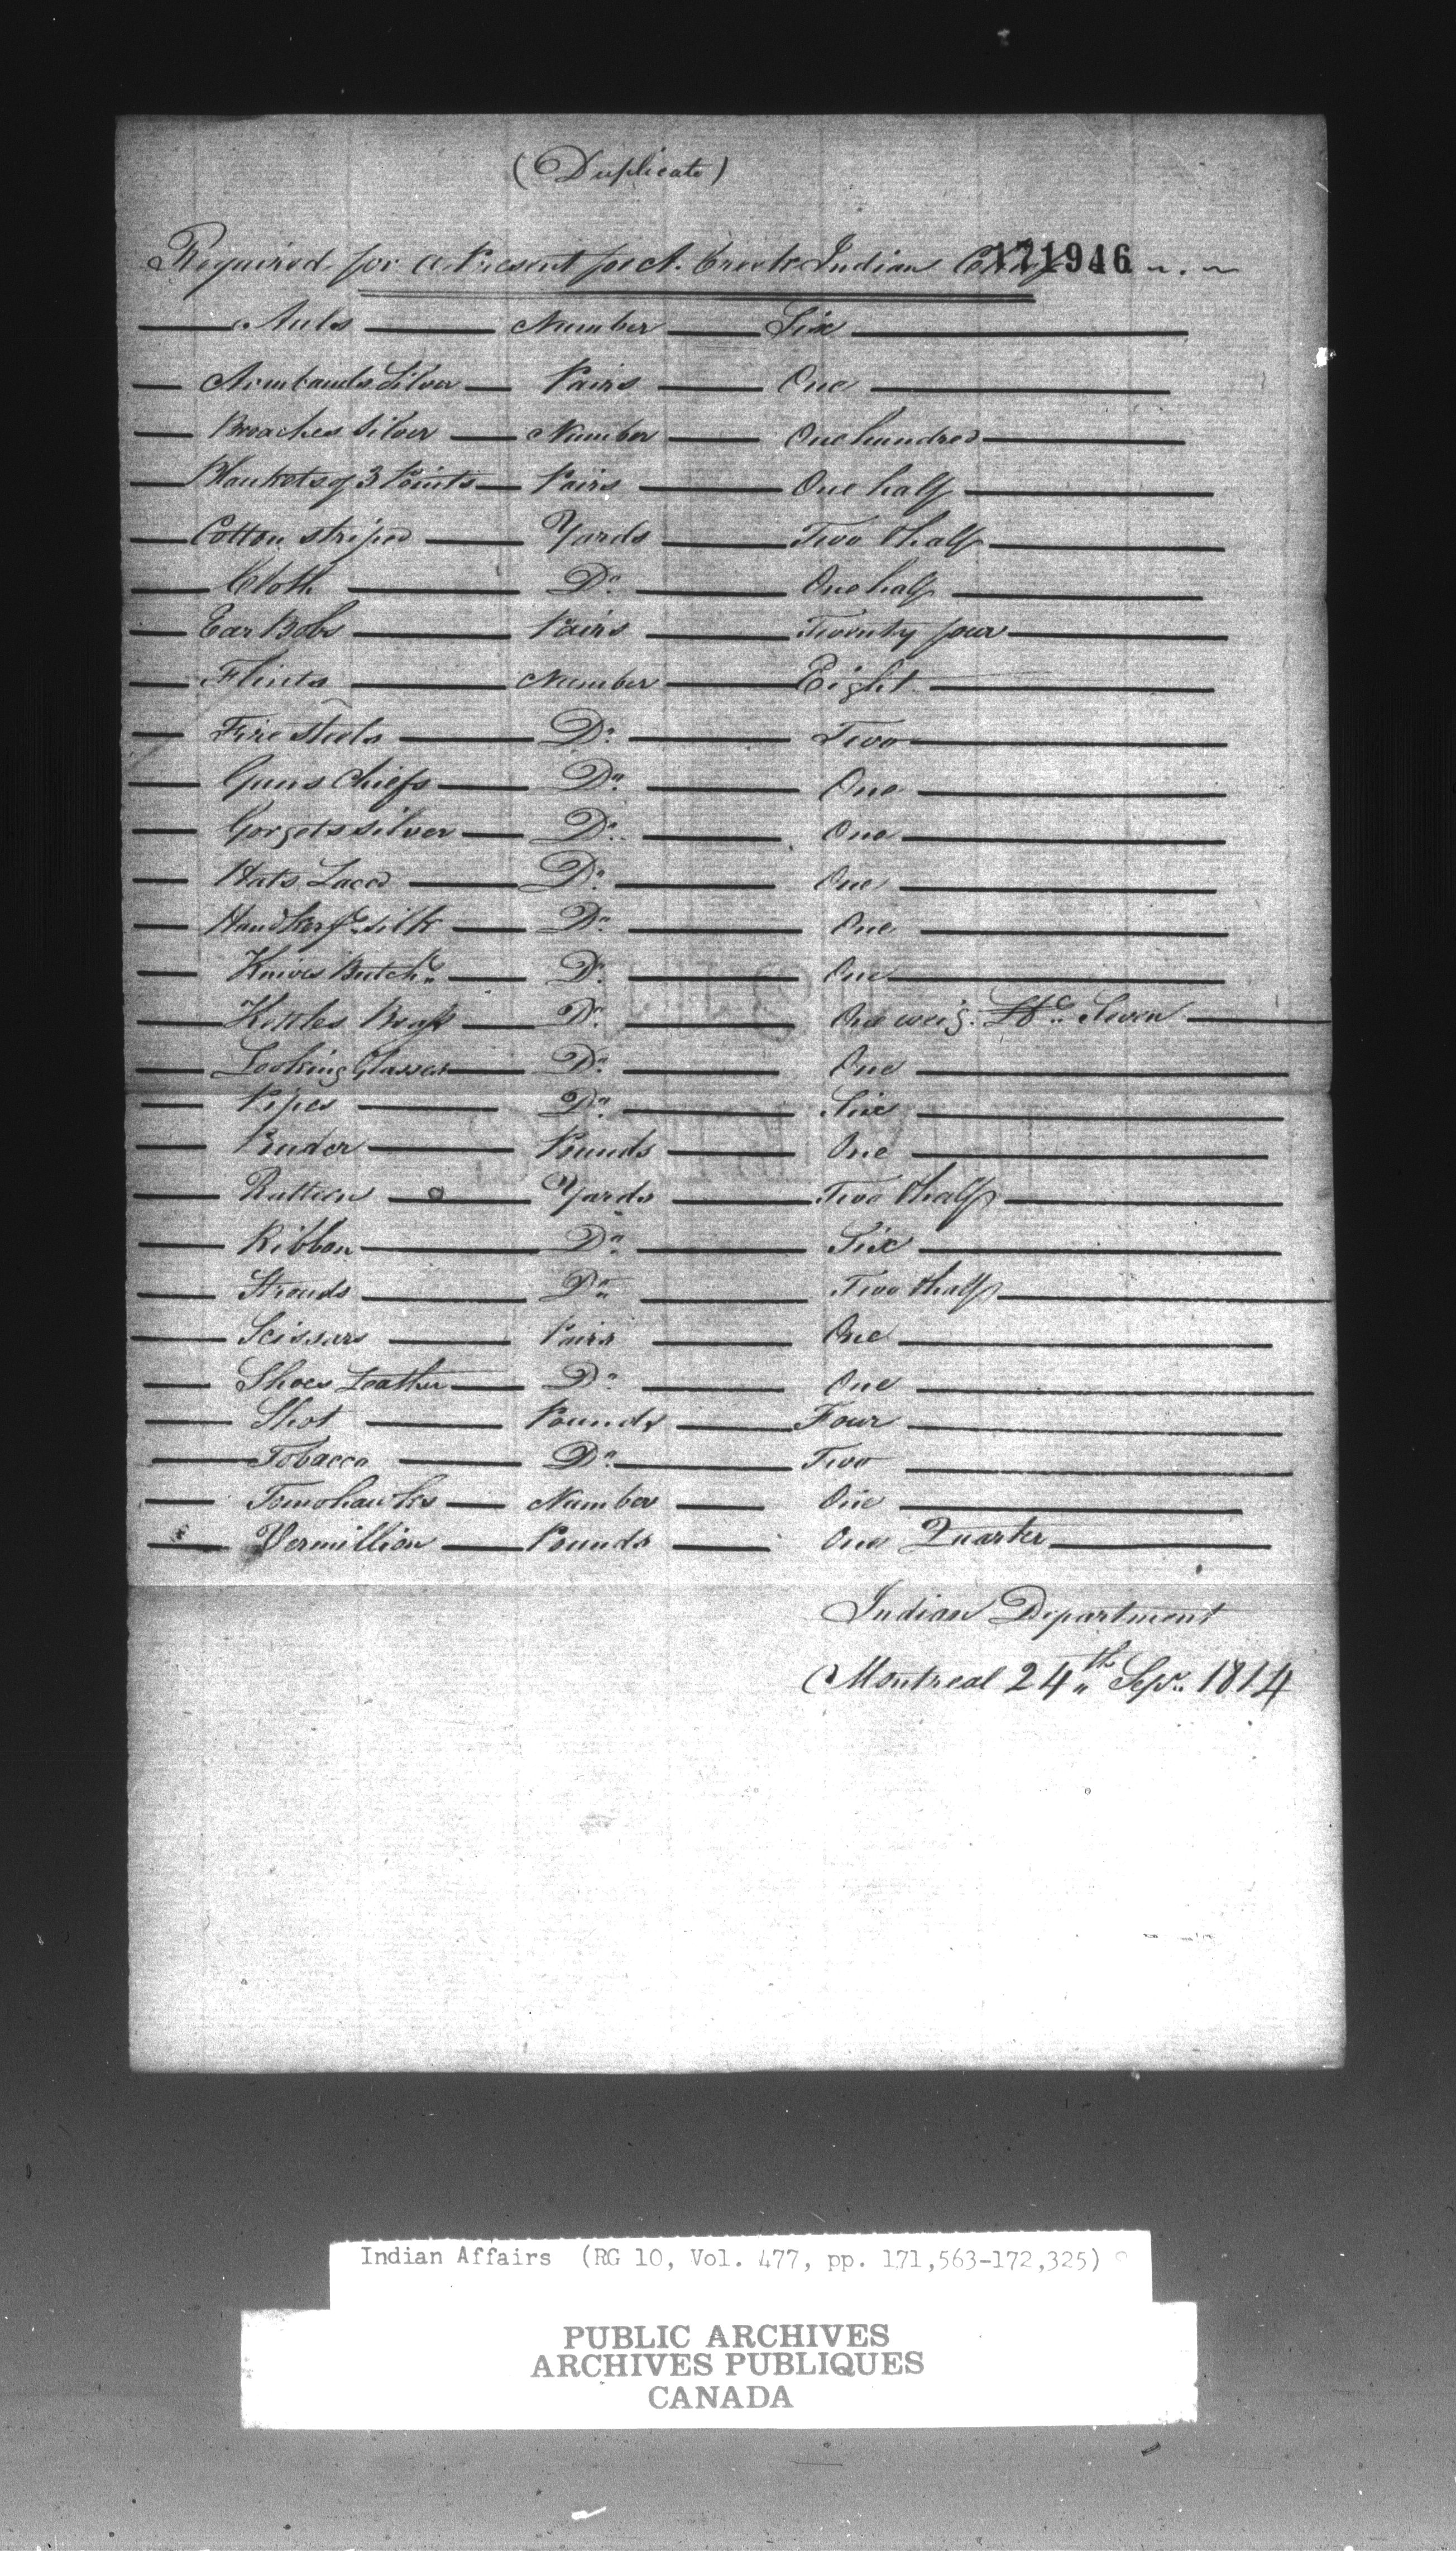 (Duplicate)
Required for a Present for A. Creek Indian 171946
Auls Number Six
Armbands Silver Pairs One
Broaches Silver Number One hundred
Blankets of 3 Points Pairs One half
Cotton striped Yards Two & half
Cloth Do One half
Ear Bobs Pairs Twenty four
Flints Number Eight
Fire Steels Do Two
Guns Chiefs Do One
Gorgets silver Do One
Hats Laced Do One
Handkerfs silk Do One
Knives Butchr Do One
Kettles Brass Do One weig. lbs Seven
Looking Glasses Do One
Pipes Do Six
Puder Pounds One
Ratteen Yards Two & half
Ribbon Do Six
Strouds Do Two & half
Scissars Pairs One
Shoes Leather Do One
Shot Pounds Four
Tobacco Do Two
Tomohawks Number One
Vermillion Pounds One Quarter
Indian Department
Montreal 24th Sepr. 1814
Indian Affairs (RG 10, Vol. 477, pp. 171,563-172,325)
PUBLIC ARCHIVES
ARCHIVES PUBLIQUES
CANADA